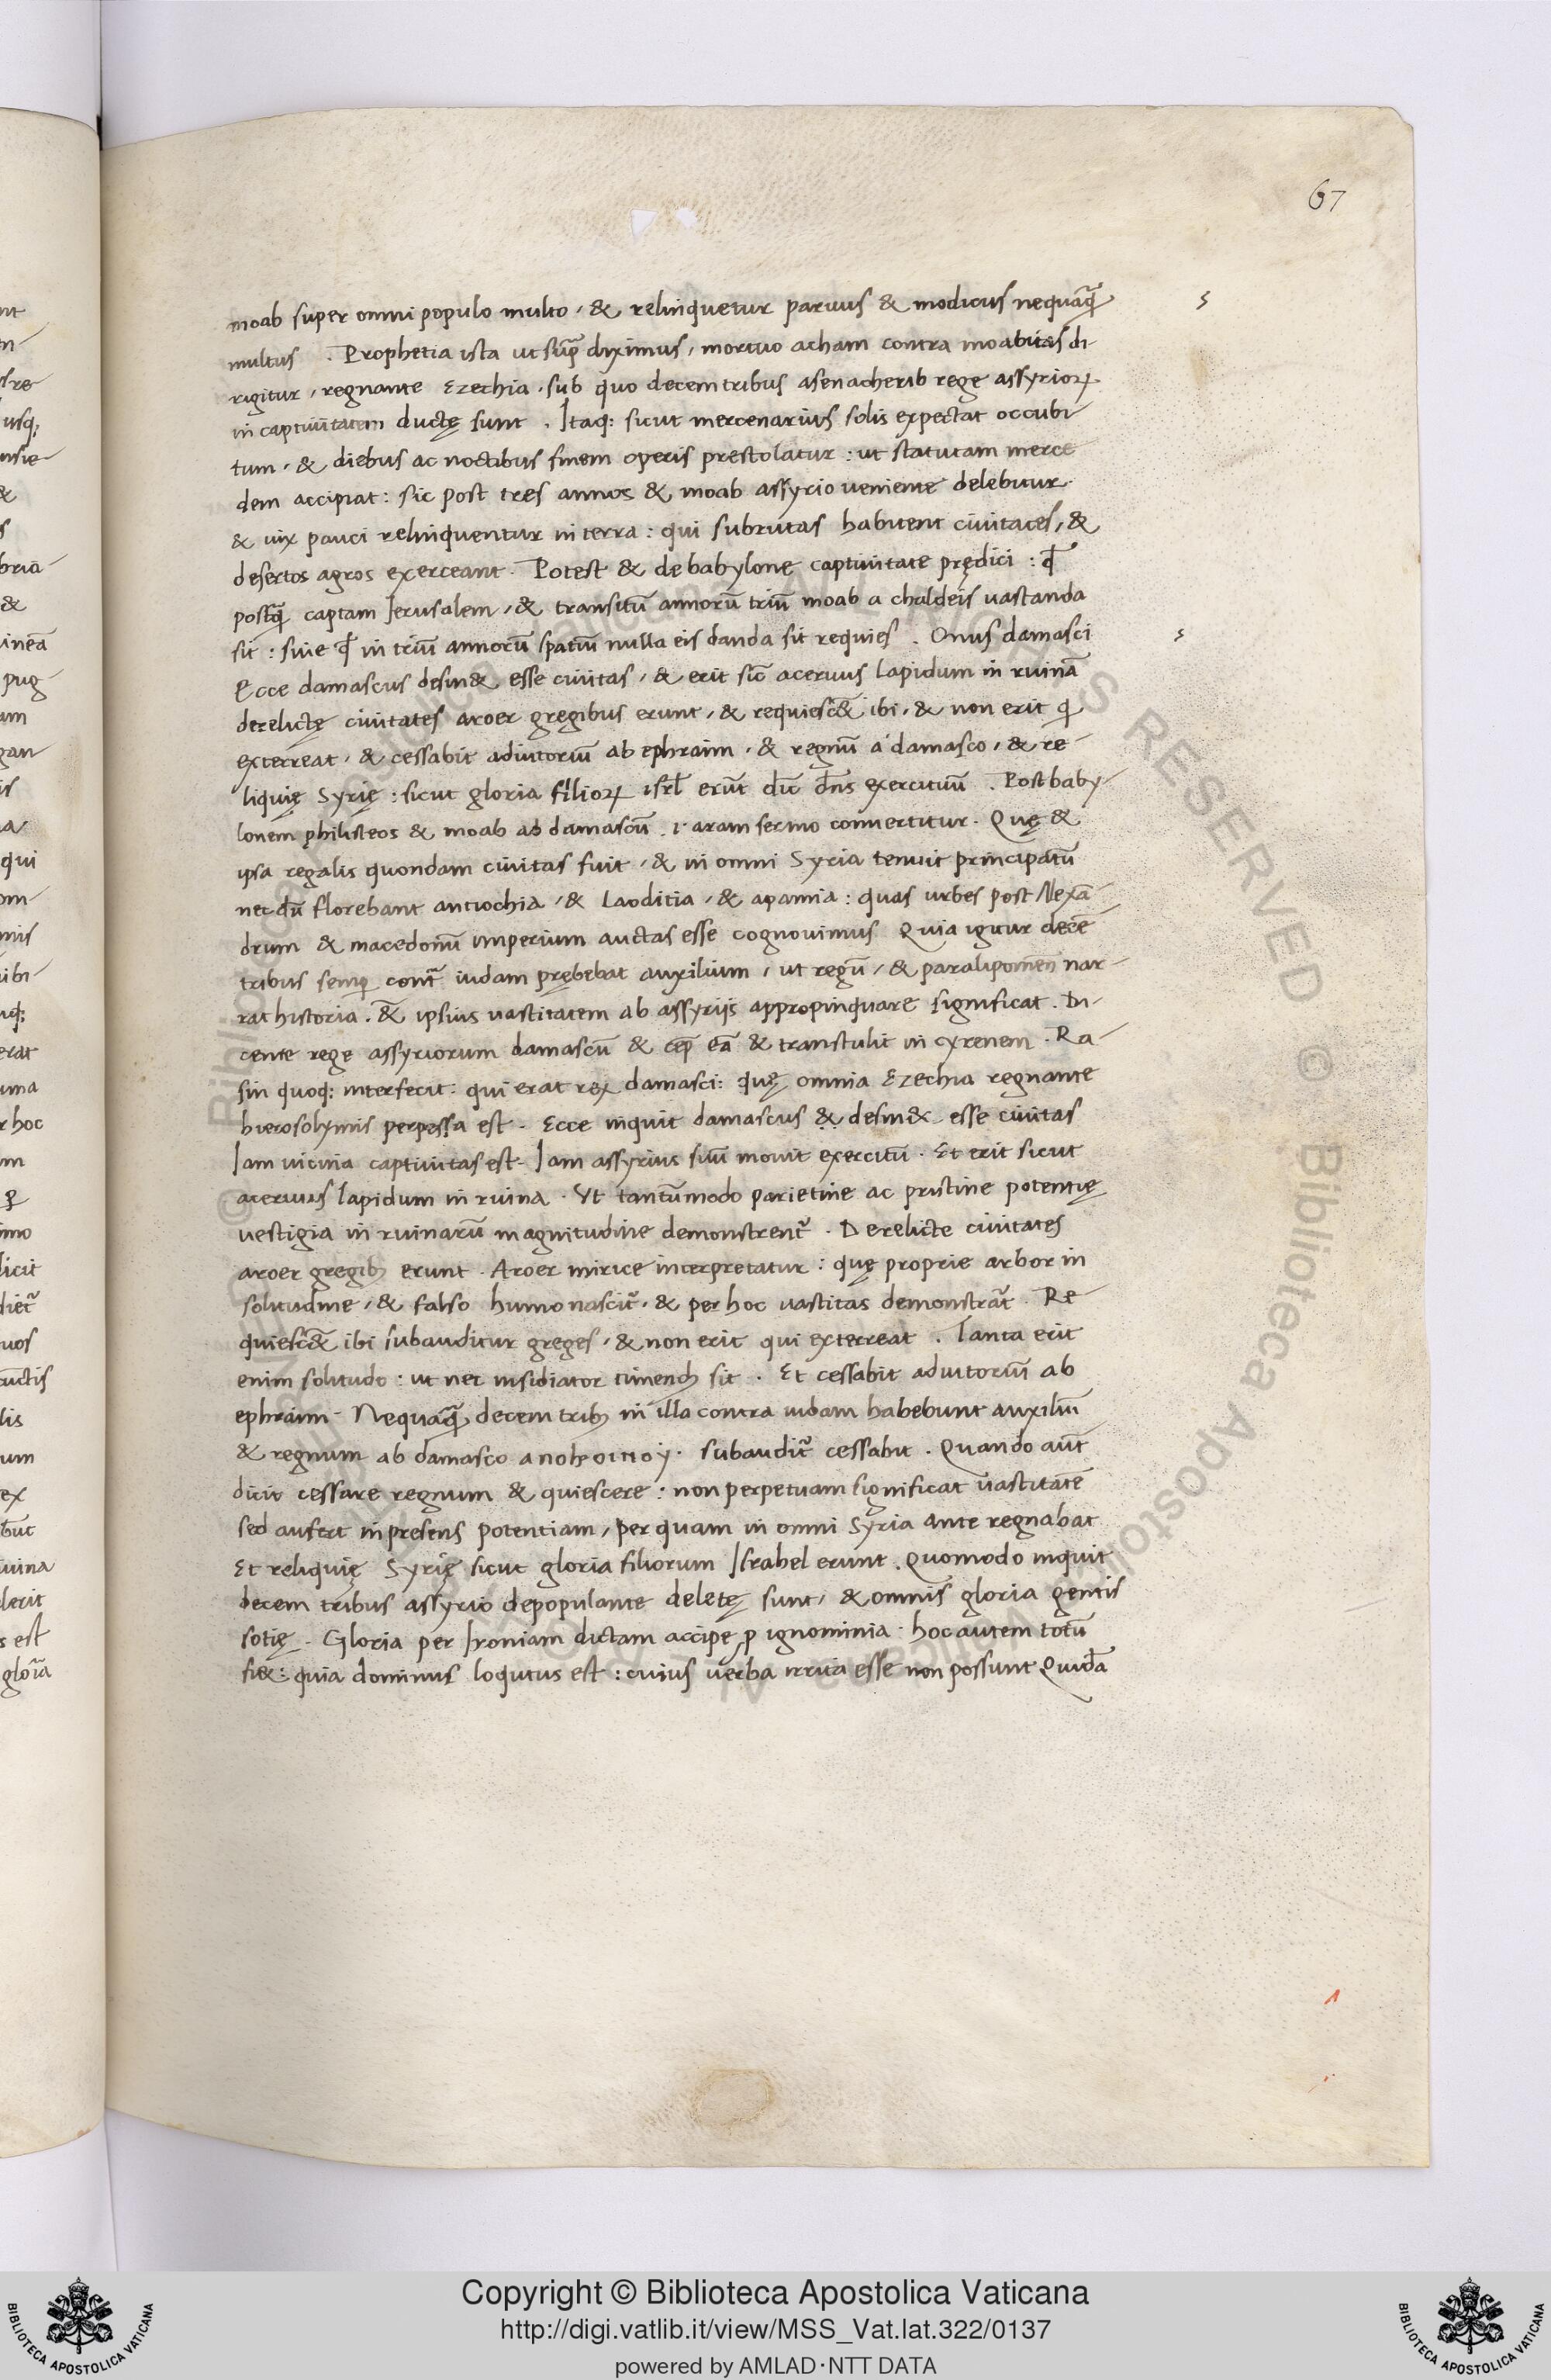 67
moab super omni populo multo, & relinquetur paruus & modicus nequaq̃
multus. Prophetia ista ut sup̃ diximus, mortuo acham contra moabitas di-
rigitur, regnante Ezechia. sub quo decem tribus asenacherib rege assyrioꝝ
in captiuitatem ductę sunt. Itaq: sicut mercenarius solis expectat occubi-
tum, & diebus ac noctibus finem operis prestolatur: ut statutam merce
dem accipiat: sic post tres annos & moab assyrio ueniente delebitur.
& uix pauci relinquentur in terra: qui subrutas habitent ciuitates, &
desertos agros exerceant. Potest & de babylone captiuitate prędici: ꝙ
postq̃ captam Ierusalem, & transitū annorū triū moab a chaldeis uastanda
sit: siue ꝙ in triū annorū spatiū nulla eis danda sit requies. Onus damasci
Ecce damascus desin& esse ciuitas, & erit sic̃ aceruus lapidum in ruinā
derelictę ciuitates aroer gregibus erunt, & requiesc̃& ibi, & non erit q
exterreat, & cessabit adiutoriū ab ephraim, & regnū a damasco, & re-
liquię Syrię: sicut gloria filioꝝ isrl̃ erūt dic̃ dñs exercituū. Post baby-
lonem philisteos & moab ad damascū .i. aram sermo conuertitur. Quę &
ipsa regalis quondam ciuitas fuit, & in omni Syria tenuit principatū
necdū florebant antiochia, & Laoditia, & apamia: quas urbes post Alexā-
drum & macedonū imperium auctas esse cognouimus Quia igitur decē
tribus semp̱ cont̃ iudam prębebat auxilium, ut regū, & paralipomen̄ nar-
rat historia. &̃ ipsius uastitatem ab assyrijs appropinquare significat. Di-
cente rege assyriorum damascū & cep̃ eā & transtulit in cyrenem. Ra-
sin quoq: interfecit: qui erat rex damasci: quę omnia Ezechia regnante
hierosolymis perpessa est. Ecce inquit damascus & desin& esse ciuitas
Iam uicina captiuitas est. Iam assyrius suū mouit exercitū. Et erit sicut
aceruus lapidum in ruina. Vt tantūmodo parietine ac pristine potentię
uestigia in ruinarū magnitudine demonstrent̃. Derelicte ciuitates
aroer gregibꝫ erunt. Aroer mirice interpretatur: quę proprie arbor in
solitudine, & falso humo nascit̃. & per hoc uastitas demonstrat̃. Re-
quiesc̃& ibi subauditur greges, & non erit qui exterreat. Tanta erit
enim solitudo: ut nec insidiator timendꝫ sit. Et cessabit adiutoriū ab
ephraim. Nequaq̃ decem tribꝫ in illa contra iudam habebunt auxiliū
& regnum ab damasco subaudit̃ cessabit. Quando aut̃
dicit cessare regnum & quiescere: non perpetuam significat uastitatē
sed aufert in presens potentiam, per quam in omni Syria ante regnabat
Et reliquię Syrię sicut gloria filiorum Israhel erunt. Quomodo inquit
decem tribus assyrio depopulante deletę sunt, & omnis gloria gentis
sotię. Gloria per Ironiam dictam accipe ꝓ ignominia. hoc autem totū
fi&: quia dominus loqutus est: cuius uerba irrita esse non possunt Quidā
Copyright © Biblioteca Apostolica Vaticana
http://digi.vatlib.it/view/MSS_Vat.lat.322/0137
powered by AMLAD·NTT DATA
BIBLIOTECA APOSTOLICA VATICANA
BIBLIOTECA APOSTOLICA VATICANA